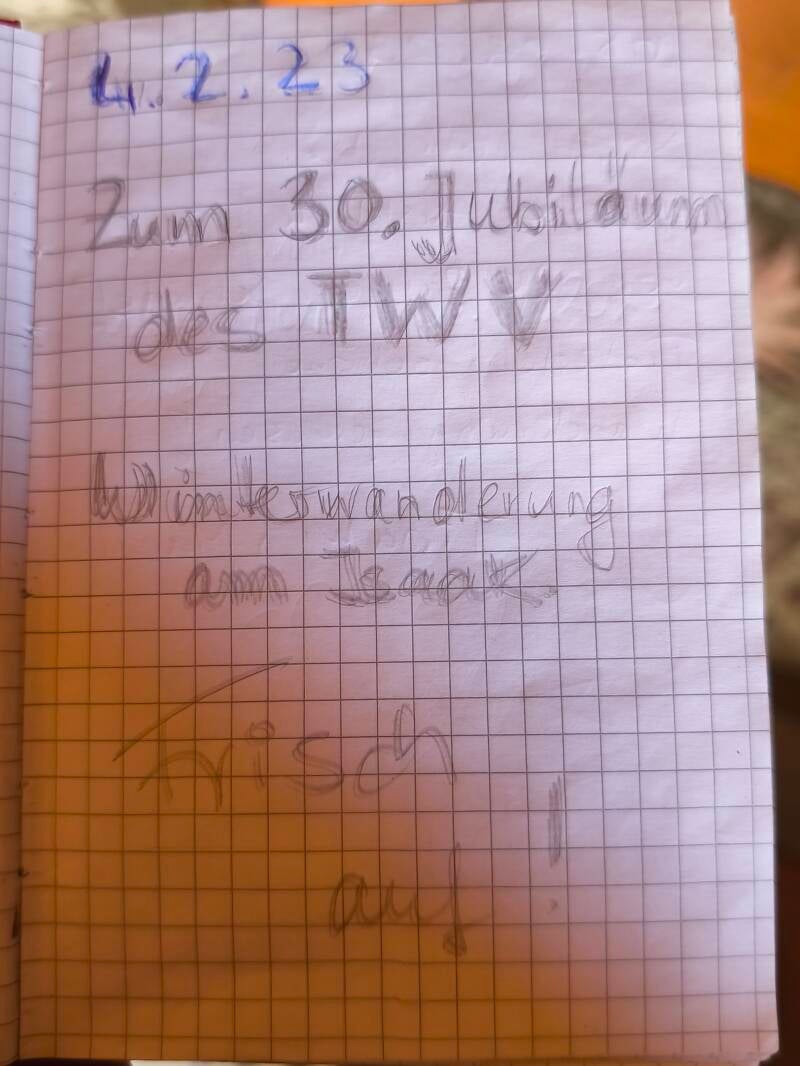 4.2.23
Zum 30. Jubiläum
des TWV
Winterwanderung
am Isaak.
Frisch
auf!